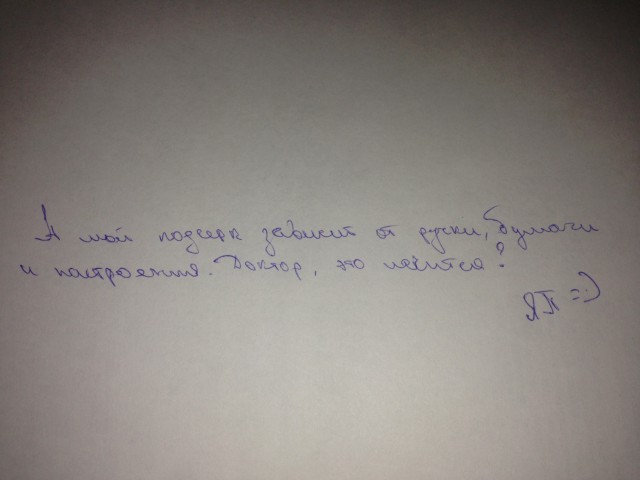 А мой подчерк зависит от ручки, бумаги
и настроения. Доктор, это лечится?
ЯП =:)